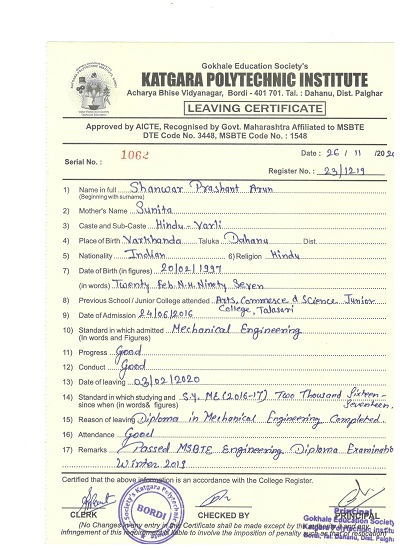 Gokhale Education Society's
KATGARA POLYTECHNIC INSTITUTE
Acharya Bhise Vidyanagar, Bordi - 401 701. Tal. : Dahanu, Dist. Palghar
LEAVING CERTIFICATE
Approved by AICTE, Recognised by Govt. Maharashtra Affiliated to MSBTE
DTE Code No. 3448, MSBTE Code No. : 1548
Date : 26 / 11 /202
Serial No. : 1062
Register No. : 23/1219
1) Name in full Shanwar Prashant Arun
(Beginning with surname)
2) Mother's Name Sunita
3) Caste and Sub-Caste Hindu - Varli
4) Place of Birth Varkhanda Taluka Dahanu Dist.
5) Nationality Indian 6) Religion Hindu
7) Date of Birth (in figures) 20/02/1997
(in words) Twenty Feb. N.H. Ninety Seven
8) Previous School / Junior College attended Arts, Commerce & Science Junior
College, Talasari
9) Date of Admission 24/06/2016
10) Standard in which admitted Mechanical Engineering
(In words and Figures)
11) Progress Good
12) Conduct Good
13) Date of leaving 03/02/2020
14) Standard in which studying and S.Y. ME (2016-17) Two Thousand Sixteen -
since when (in words& figures) Seventeen.
15) Reason of leaving Diploma in Mechanical Engineering Completed.
16) Attendance Good
17) Remarks Passed MSBTE Engineering Diploma Examinatio
Winter 2019
Certified that the above information is an accordance with the College Register.
CLERK CHECKED BY PRINCIPAL
Principal
Gokhale Education Society
BORDI
(No Changes in any entry in this Certificate shall be made except by the authority issuing it and any
infringement of this Requirement is liable to involve the imposition of penalty such as that of